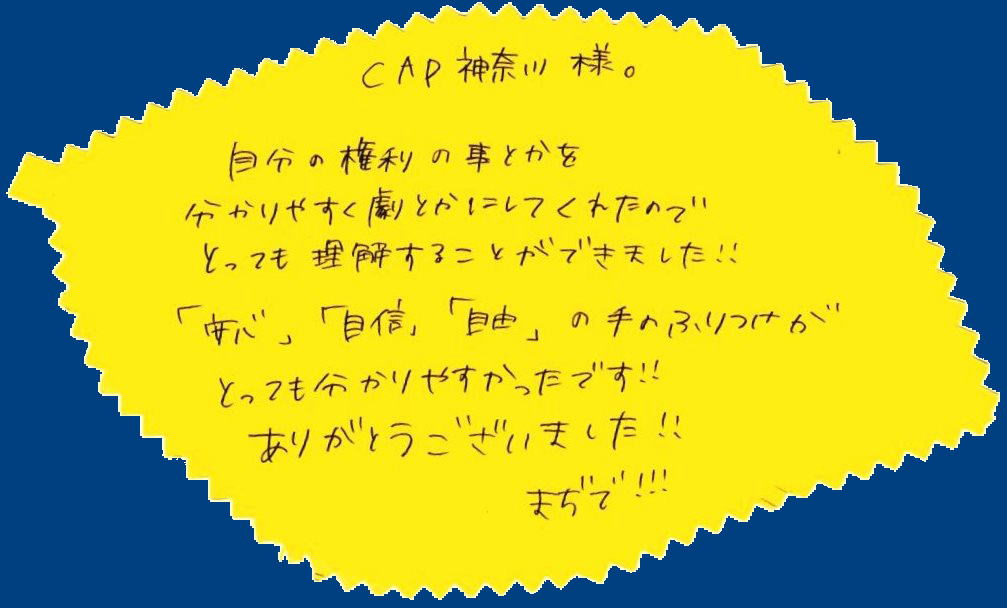 CAP 神奈川 様。
自分の権利の事とかを
分かりやすく劇とかにしてくれたので
とっても理解することができました!!
「安心」「自信」「自由」の手のふりつけが
とっても分かりやすかったです!!
ありがとうございました!!
まぢで!!!